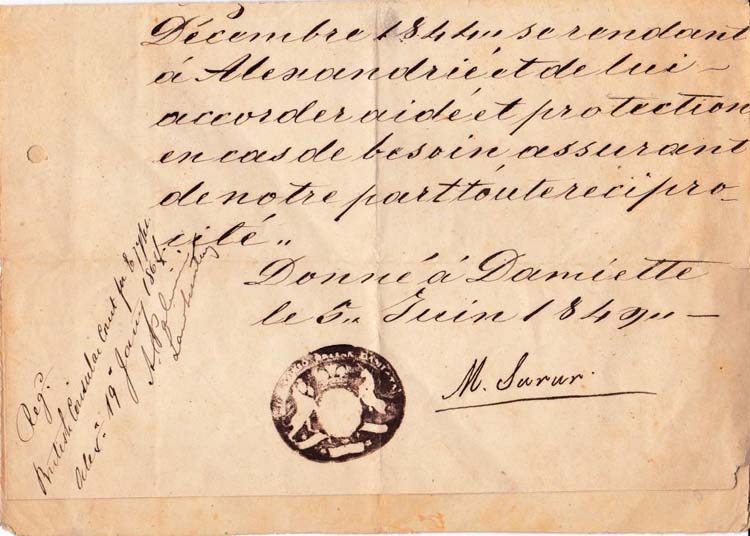 Décembre 1844 „ se rendant
á Alexandrié et de lui –
accorder aidé et protection
en cas de besoin assurant
de notre part toute recipro-
cité „
Donné á Damiette
le 5 „ Juin 1849 „ –
M. Surur.
Reg.
British Consular Court for Egypt
Alex.ª 19 Jany 1864